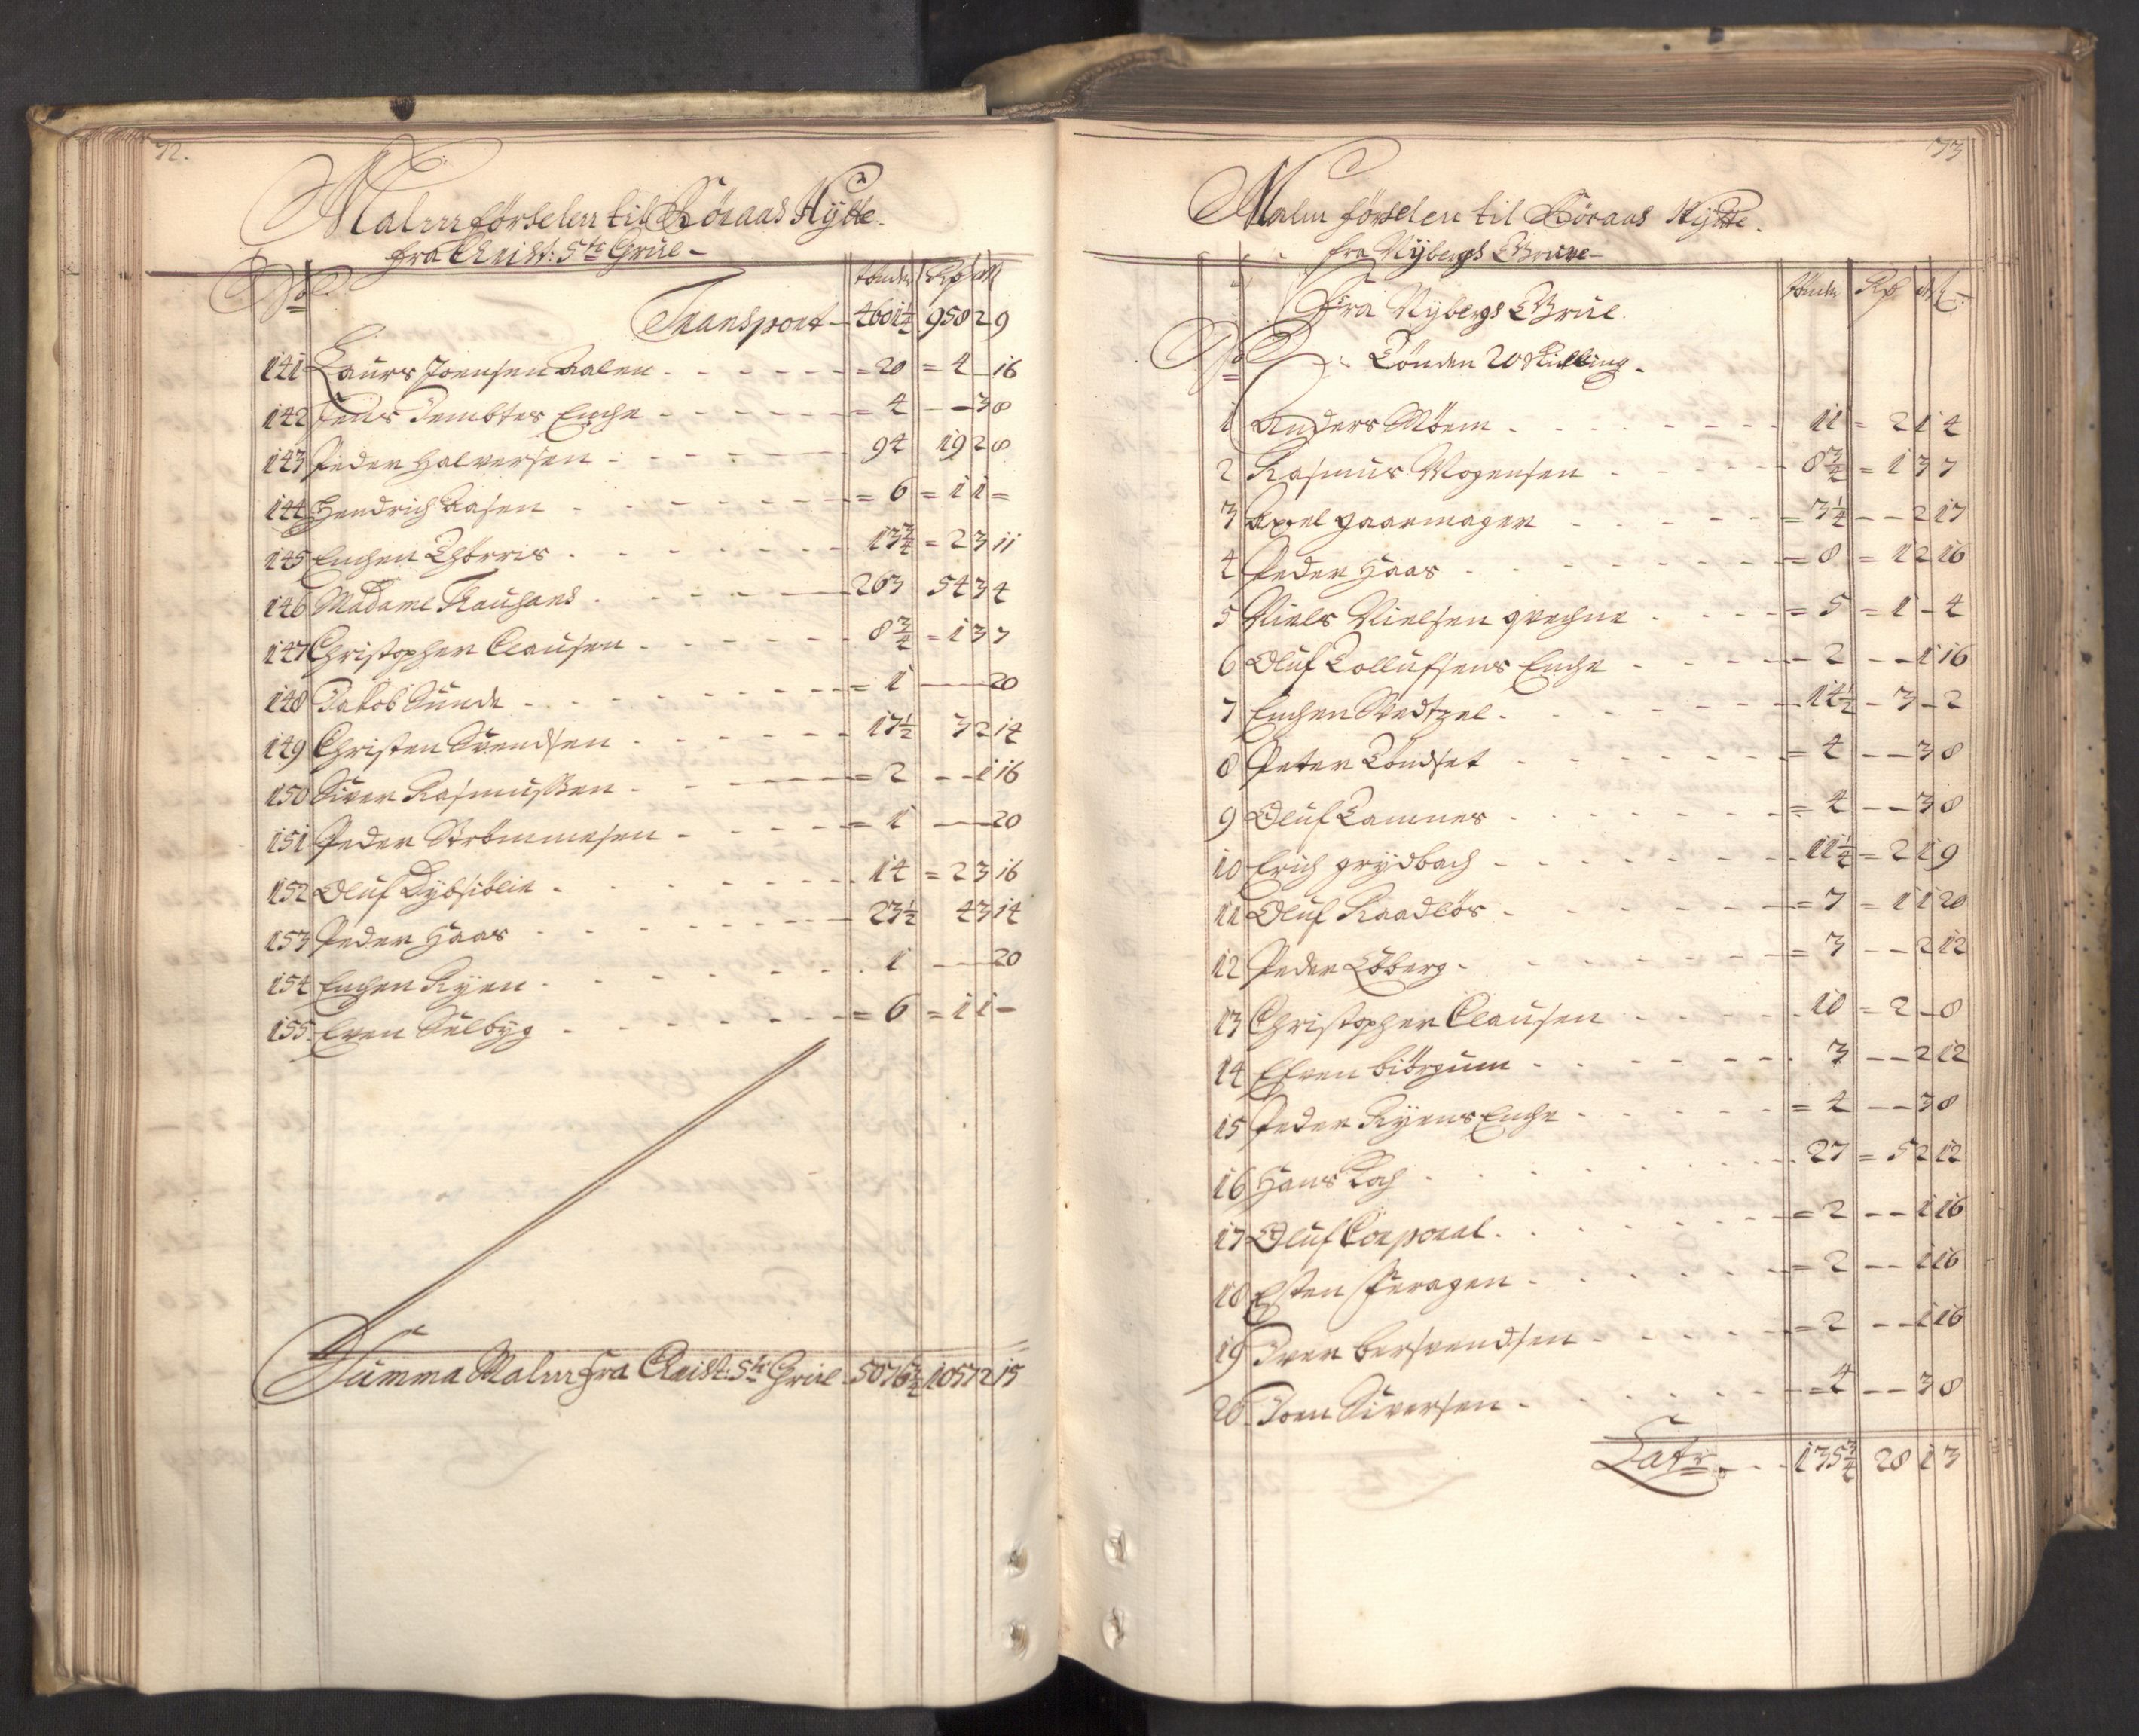 72.
Malm förselen til Röraas Hÿtte.
fra Christ: 5te Grue
No Tönder Rd M
Transport 4601½ 958 2 9
141 Laurs Joensen Aalen = 20 = 4 - 16
142 Jens Tembtes Enche = 4 - - 3 8
143 Peder Halversen 94 19 2 8
144 Hendrich Aasen = 6 = 1 1 =
145 Enchen Thorris 13¾ = 2 3 11
146 Madame 263 54 3 4
147 Christopher Clausen 8¾ = 1 3 7
148 Jakob Sunde = 1 20
149 Christen Svendsen 17½ 3 2 14
150 Siver Rasmussen = 2 - - 1 16
151 Peder Strömmesen = 1 20
152 Oluf 14 = 2 3 16
153 Peder Haas 23½ 4 3 14
154 Enchen Ryen 1 20
155 Even Selbyg = 6 = 1 1 -
Summa Malm fra Christ: 5te Grue 5076¾ 1057 2 15
73
Malm förselen til Röraas Hÿtte.
fra Nÿbergs Grue
Tönder Rd M
Fra Nÿbergs Grue.
No Tönden 20 Skilling.
1 Anders Möem 11 = 2 1 4
2 Rasmus Mogensen 8¾ = 1 3 7
3 Axel gaarmager = 3¼ - - 2 17
4 Peder Haas = 8 = 1 2 16
5 Niels Nielsen = 5 = 1 - 4
6 Oluf Tollufsens Enche 2 - - 1 16
7 Enchen 14½ - 3 - 2
8 Peter Töndset = 4 - - 3 8
9 Oluf Tamnes = 4 - - 3 8
10 Erich grÿdbach 11¼ = 2 1 9
11 Oluf Raadlös = 7 = 1 1 20
12 Peder Löberg = 3 - - 2 12
13 Christopher Clausen 10 = 2 - 8
14 Efven biörgum 3 - - 2 12
15 Peder Ryens Enche = 4 - - 3 8
16 Hans Koch 27 = 5 2 12
17 Oluf Corporal = 2 - - 1 16
18 Esten Feragen = 2 - - 1 16
19 Iver Bersvendsen = 2 - - 1 16
20 Joen Siversen = 4 - - 3 8
Latr. 135¾ 28 1 3